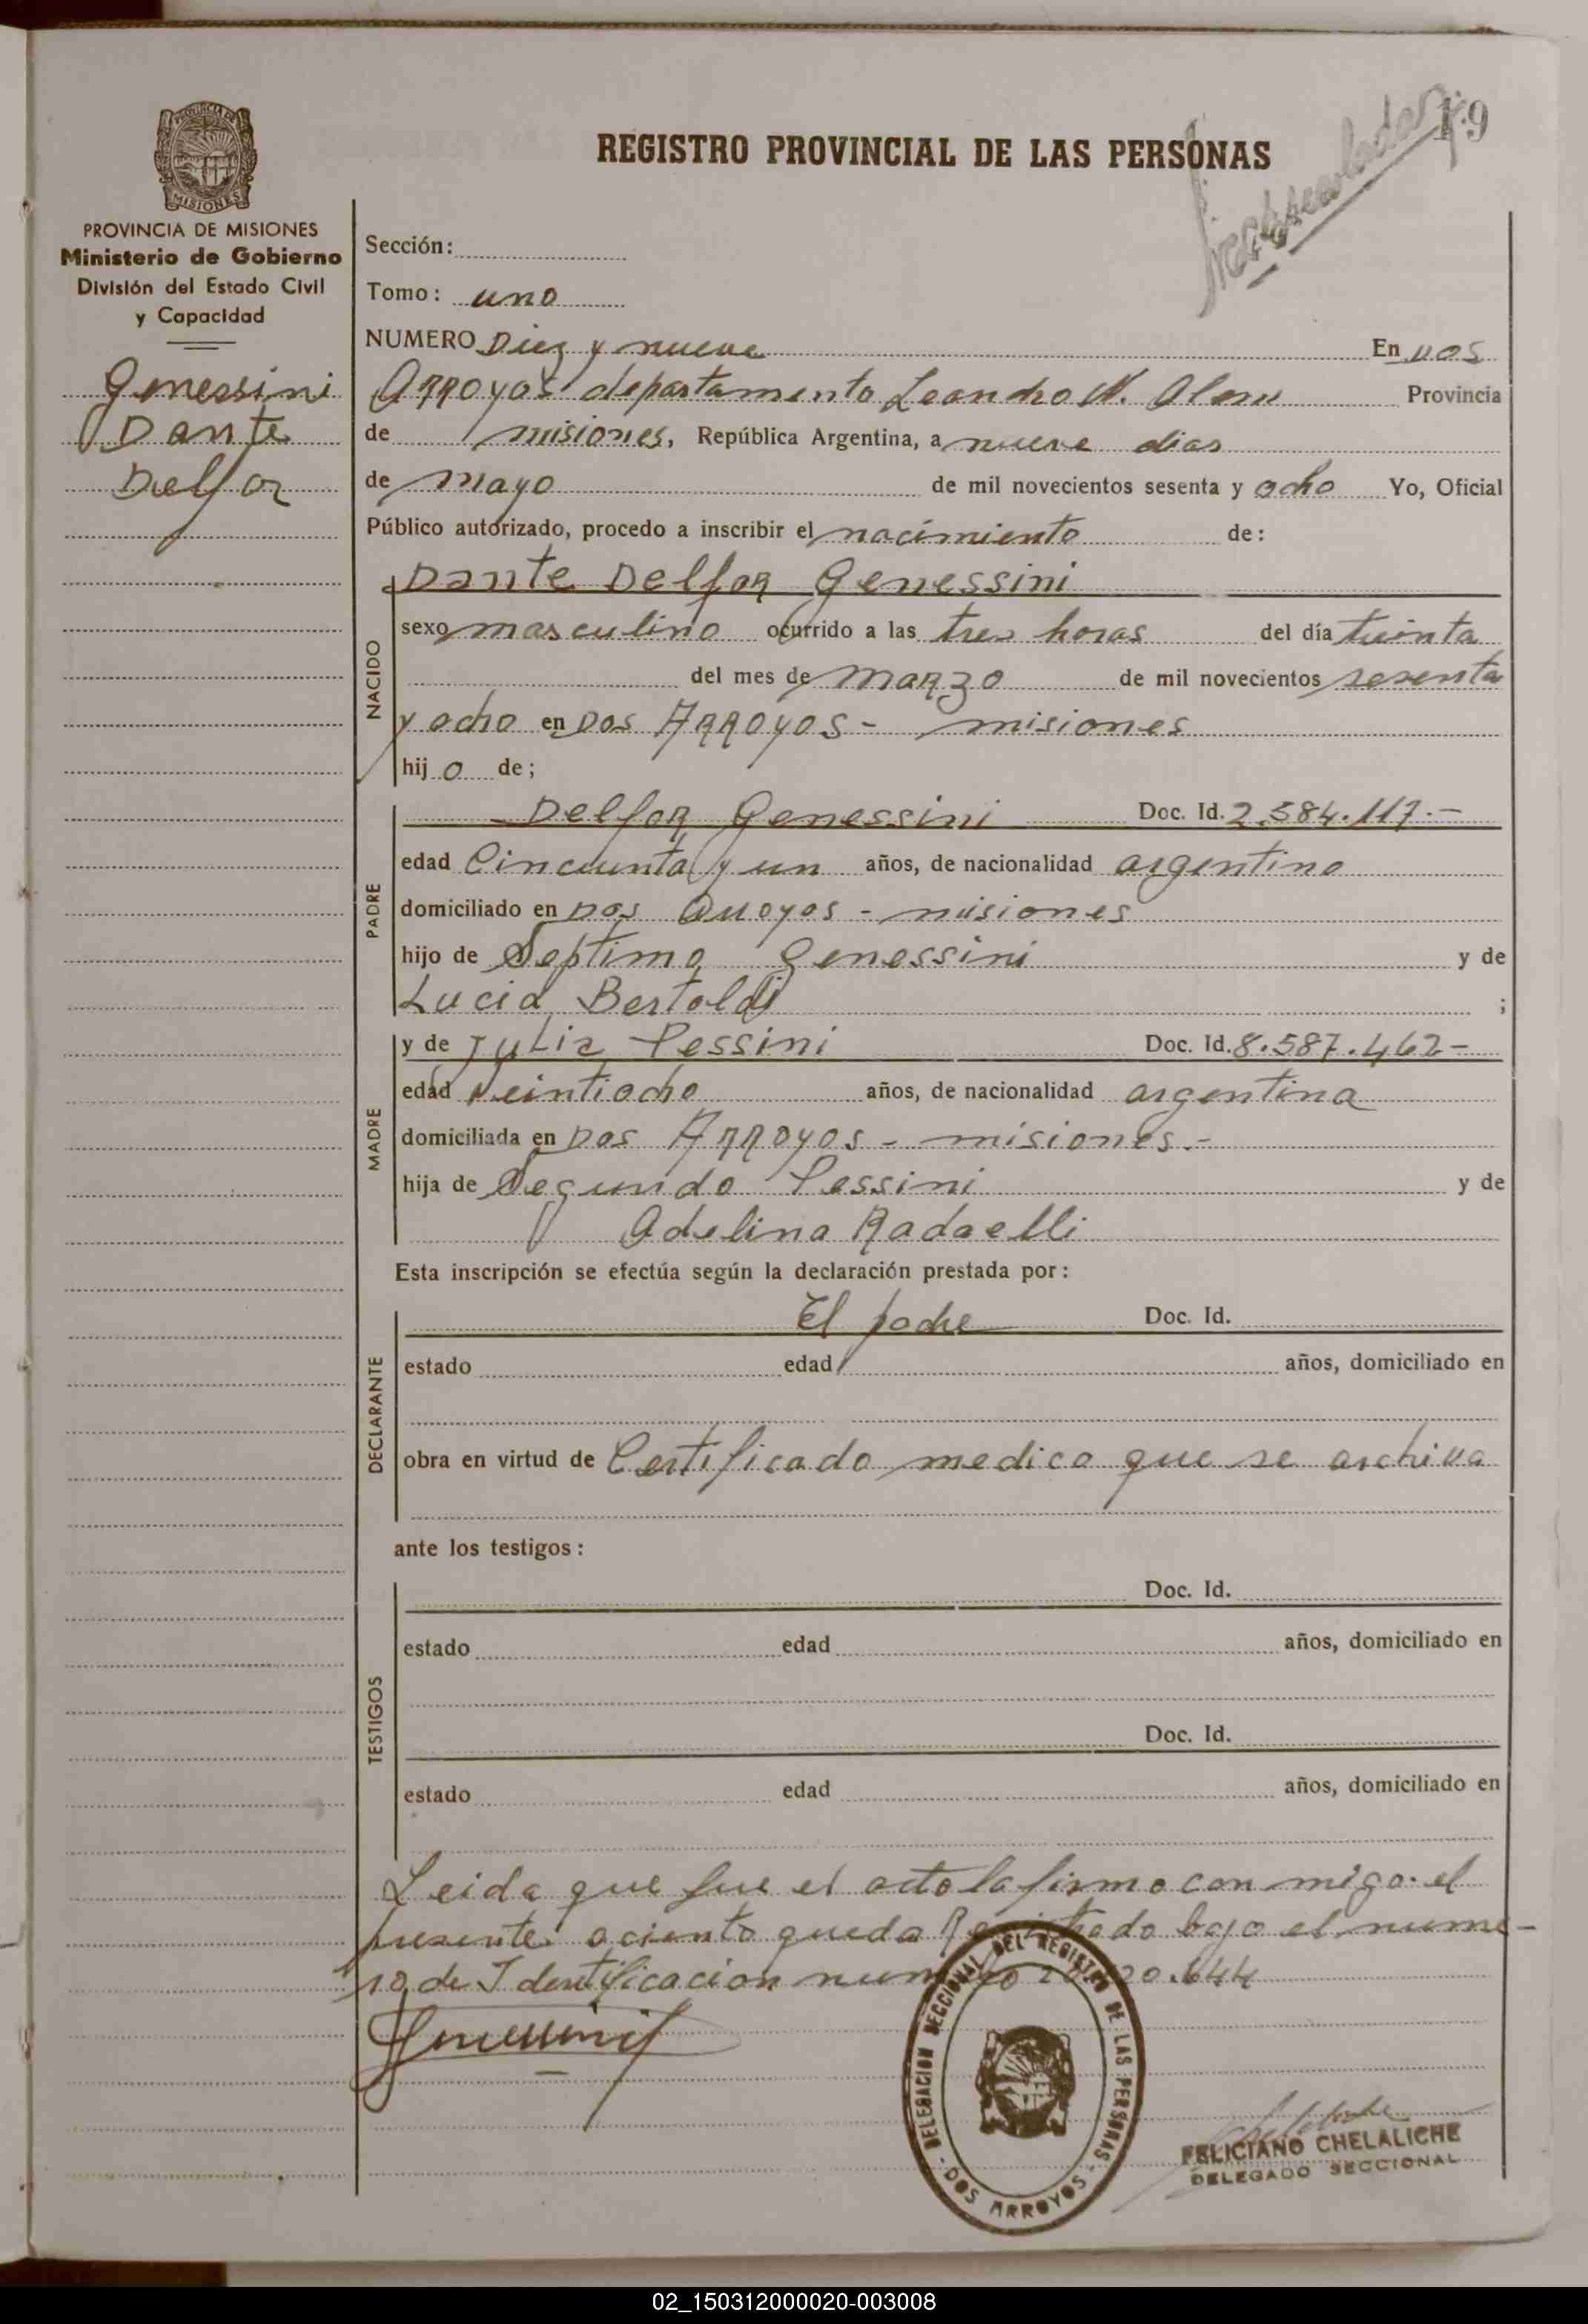 PROVINCIA DE
MISIONES
PROVINCIA DE MISIONES
Ministerio de Gobierno
División del Estado Civil
y Capacidad
Genessini
Dante
Delfor
19
REGISTRO PROVINCIAL DE LAS PERSONAS
Sección:
Tomo: uno
NUMERO Diez y nueve En Dos
Arroyos departamento Leandro N. Alem Provincia
de misiones, República Argentina, a nueve dias
de mayo de mil novecientos sesenta y ocho Yo, Oficial
Público autorizado, procedo a inscribir el nacimiento de:
NACIDO
Dante Delfor Genessini
sexo masculino ocurrido a las tres horas del día treinta
del mes de marzo de mil novecientos sesenta
y ocho en Dos Arroyos - misiones
hijo de;
PADRE
Delfor Genessini Doc. Id. 2.584.117.-
edad Cincuenta y un años, de nacionalidad argentino
domiciliado en Dos Arroyos - misiones
hijo de Septimo Genessini y de
Lucia Bertoldi ;
MADRE
y de Julia Pessini Doc. Id. 8.587.462-
edad Veintiocho años, de nacionalidad argentina
domiciliada en Dos Arroyos - misiones.-
hija de Segundo Pessini y de
Adelina Radaelli
Esta inscripción se efectúa según la declaración prestada por:
DECLARANTE
El padre Doc. Id.
estado edad años, domiciliado en
obra en virtud de Certificado medico que se archiva
ante los testigos:
TESTIGOS
Doc. Id.
estado edad años, domiciliado en
Doc. Id.
estado edad años, domiciliado en
Leida que fue el acto la firmo con migo. el
presente aciento queda bajo el nume-
ro de Identificacion
DELEGACION SECCIONAL DEL REGISTRO DE LAS PERSONAS
- DOS ARROYOS -
FELICIANO CHELALICHE
DELEGADO SECCIONAL
02_150312000020-003008